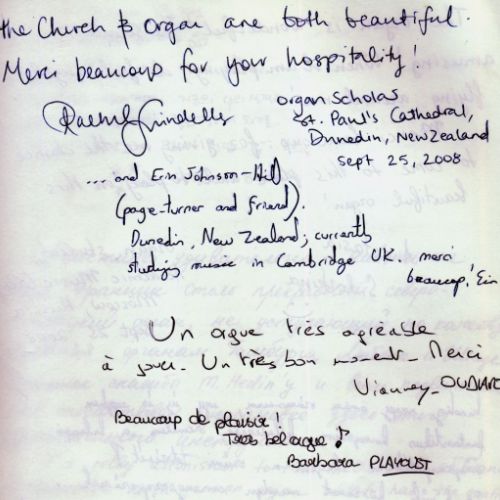 the Church & Organ are both beautiful.
Merci beaucoup for your hospitality!
organ Scholar
St. Paul's Cathedral,
Dunedin, New Zealand
Sept 25, 2008
... and Erin Johnson-Hill
(page-turner and friend).
Dunedin, New Zealand; currently
studying music in Cambridge UK. merci
beaucoup! Erin
Un orgue très agréable
à jouer. Un très bon moment. Merci
Beaucoup de plaisir!
Très bel orgue!
Barbara PLAYOUST